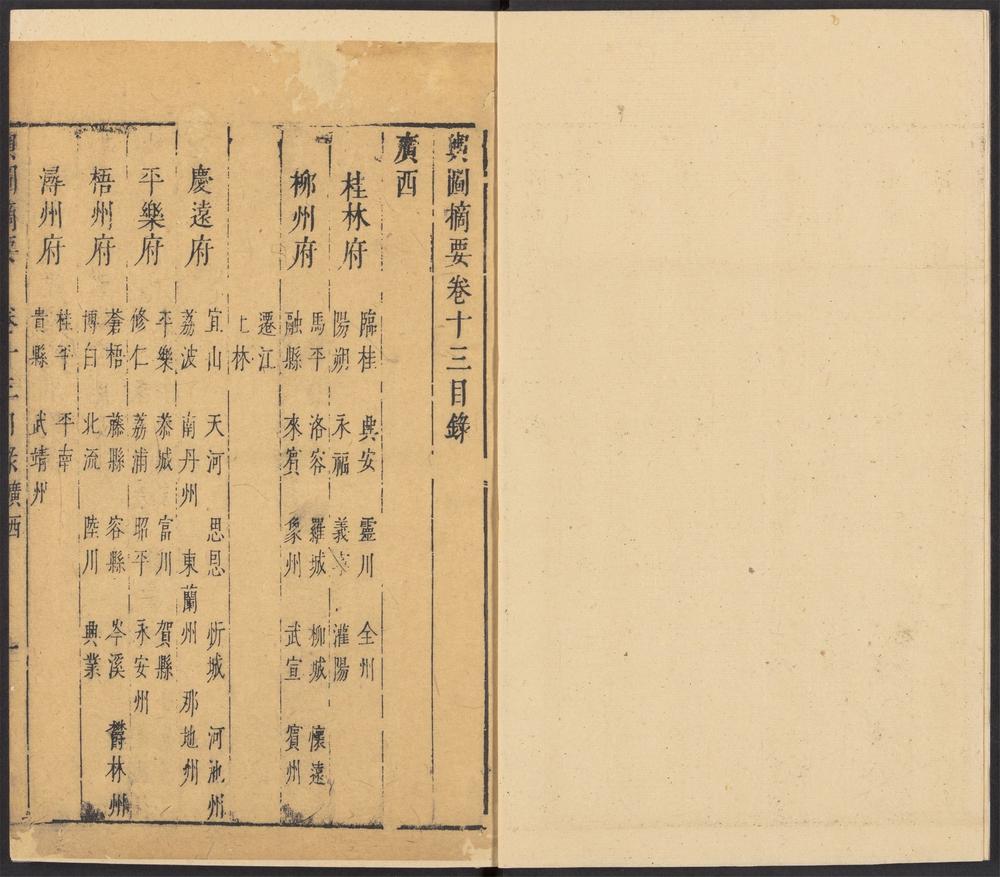 輿圖摘要卷十三目錄
廣西
桂林府
臨桂 興安 靈川 全州
陽朔 永福 義寧 灌陽
柳州府
馬平 洛容 羅城 柳城 懷遠
融縣 來賓 象州 武宣 賓州
遷江
上林
慶遠府
宜山 天河 思恩 忻城 河池州
荔波 南丹州 東蘭州 那地州
平樂府
平樂 恭城 富川 賀縣
修仁 荔浦 昭平 永安州
梧州府
蒼梧 藤縣 容縣 岑溪 欎林州
博白 北流 陸川 興業
潯州府
桂平 平南
貴縣 武靖州
輿圖摘要 卷十三目錄廣西 一